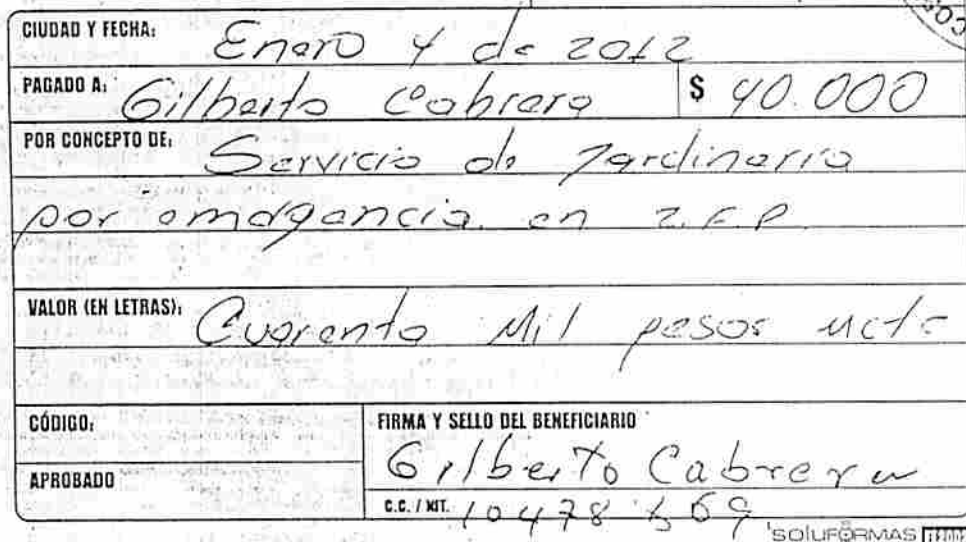 CIUDAD Y FECHA: Enero 4 de 2012
PAGADO A: Gilberto Cabrera $ 40.000
POR CONCEPTO DE: Servicio de Jardineria
por emergencia en Z.F.P.
VALOR (EN LETRAS): Cuarenta Mil pesos mcte
CÓDIGO: FIRMA Y SELLO DEL BENEFICIARIO
Gilberto Cabrera
APROBADO
C.C. / NIT.
SOLUFORMAS